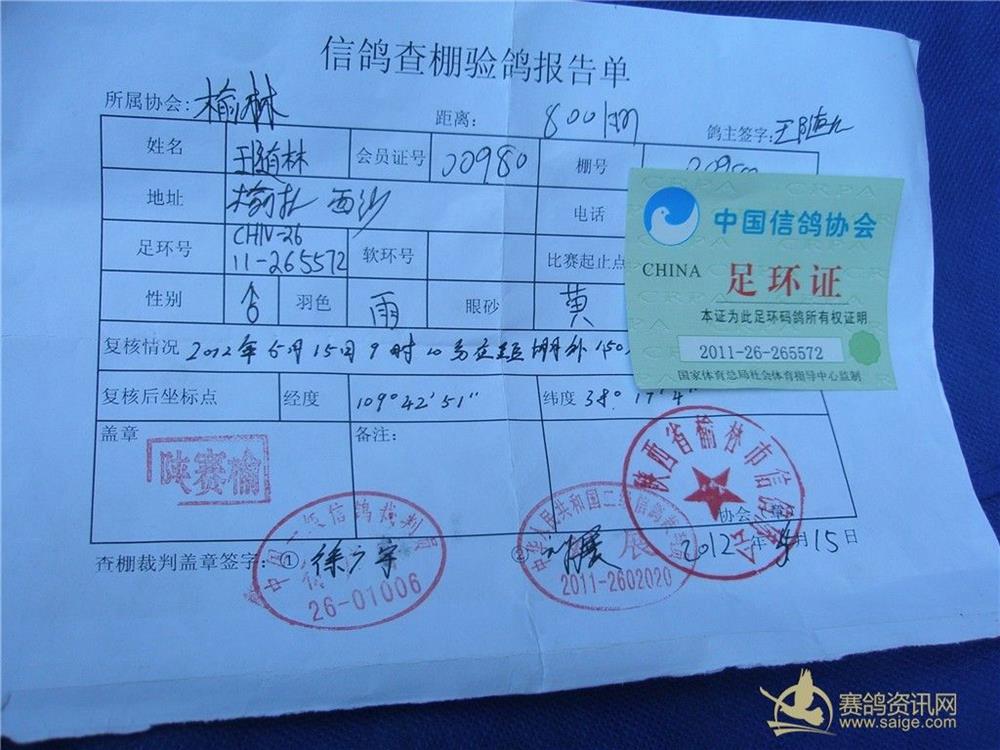 信鸽查棚验鸽报告单
所属协会: 榆林 距离: 800km 鸽主签字:
姓名 王道林 会员证号 00980 棚号
地址 榆林 西沙 电话
足环号 CHN-26 11-265572 软环号 比赛起止点
性别 ♂ 羽色 雨 眼砂 黄
复核情况 2012年5月15日9时10
复核后坐标点 经度 109°42′51″ 纬度 38° 17′4″
盖章 备注:
陕赛榆
陕西省榆林市信鸽协会
协会
2012年5月15日
查棚裁判盖章签字: ① 徐广宇 ②
中国一级信鸽裁判员
26-01006
中华人民共和国二级信鸽裁判员
展
2011-2602020
中国信鸽协会
CRPA
CHINA 足环证
本证为此足环码鸽所有权证明
2011-26-265572
国家体育总局社会体育指导中心监制
赛鸽资讯网
www.saige.com